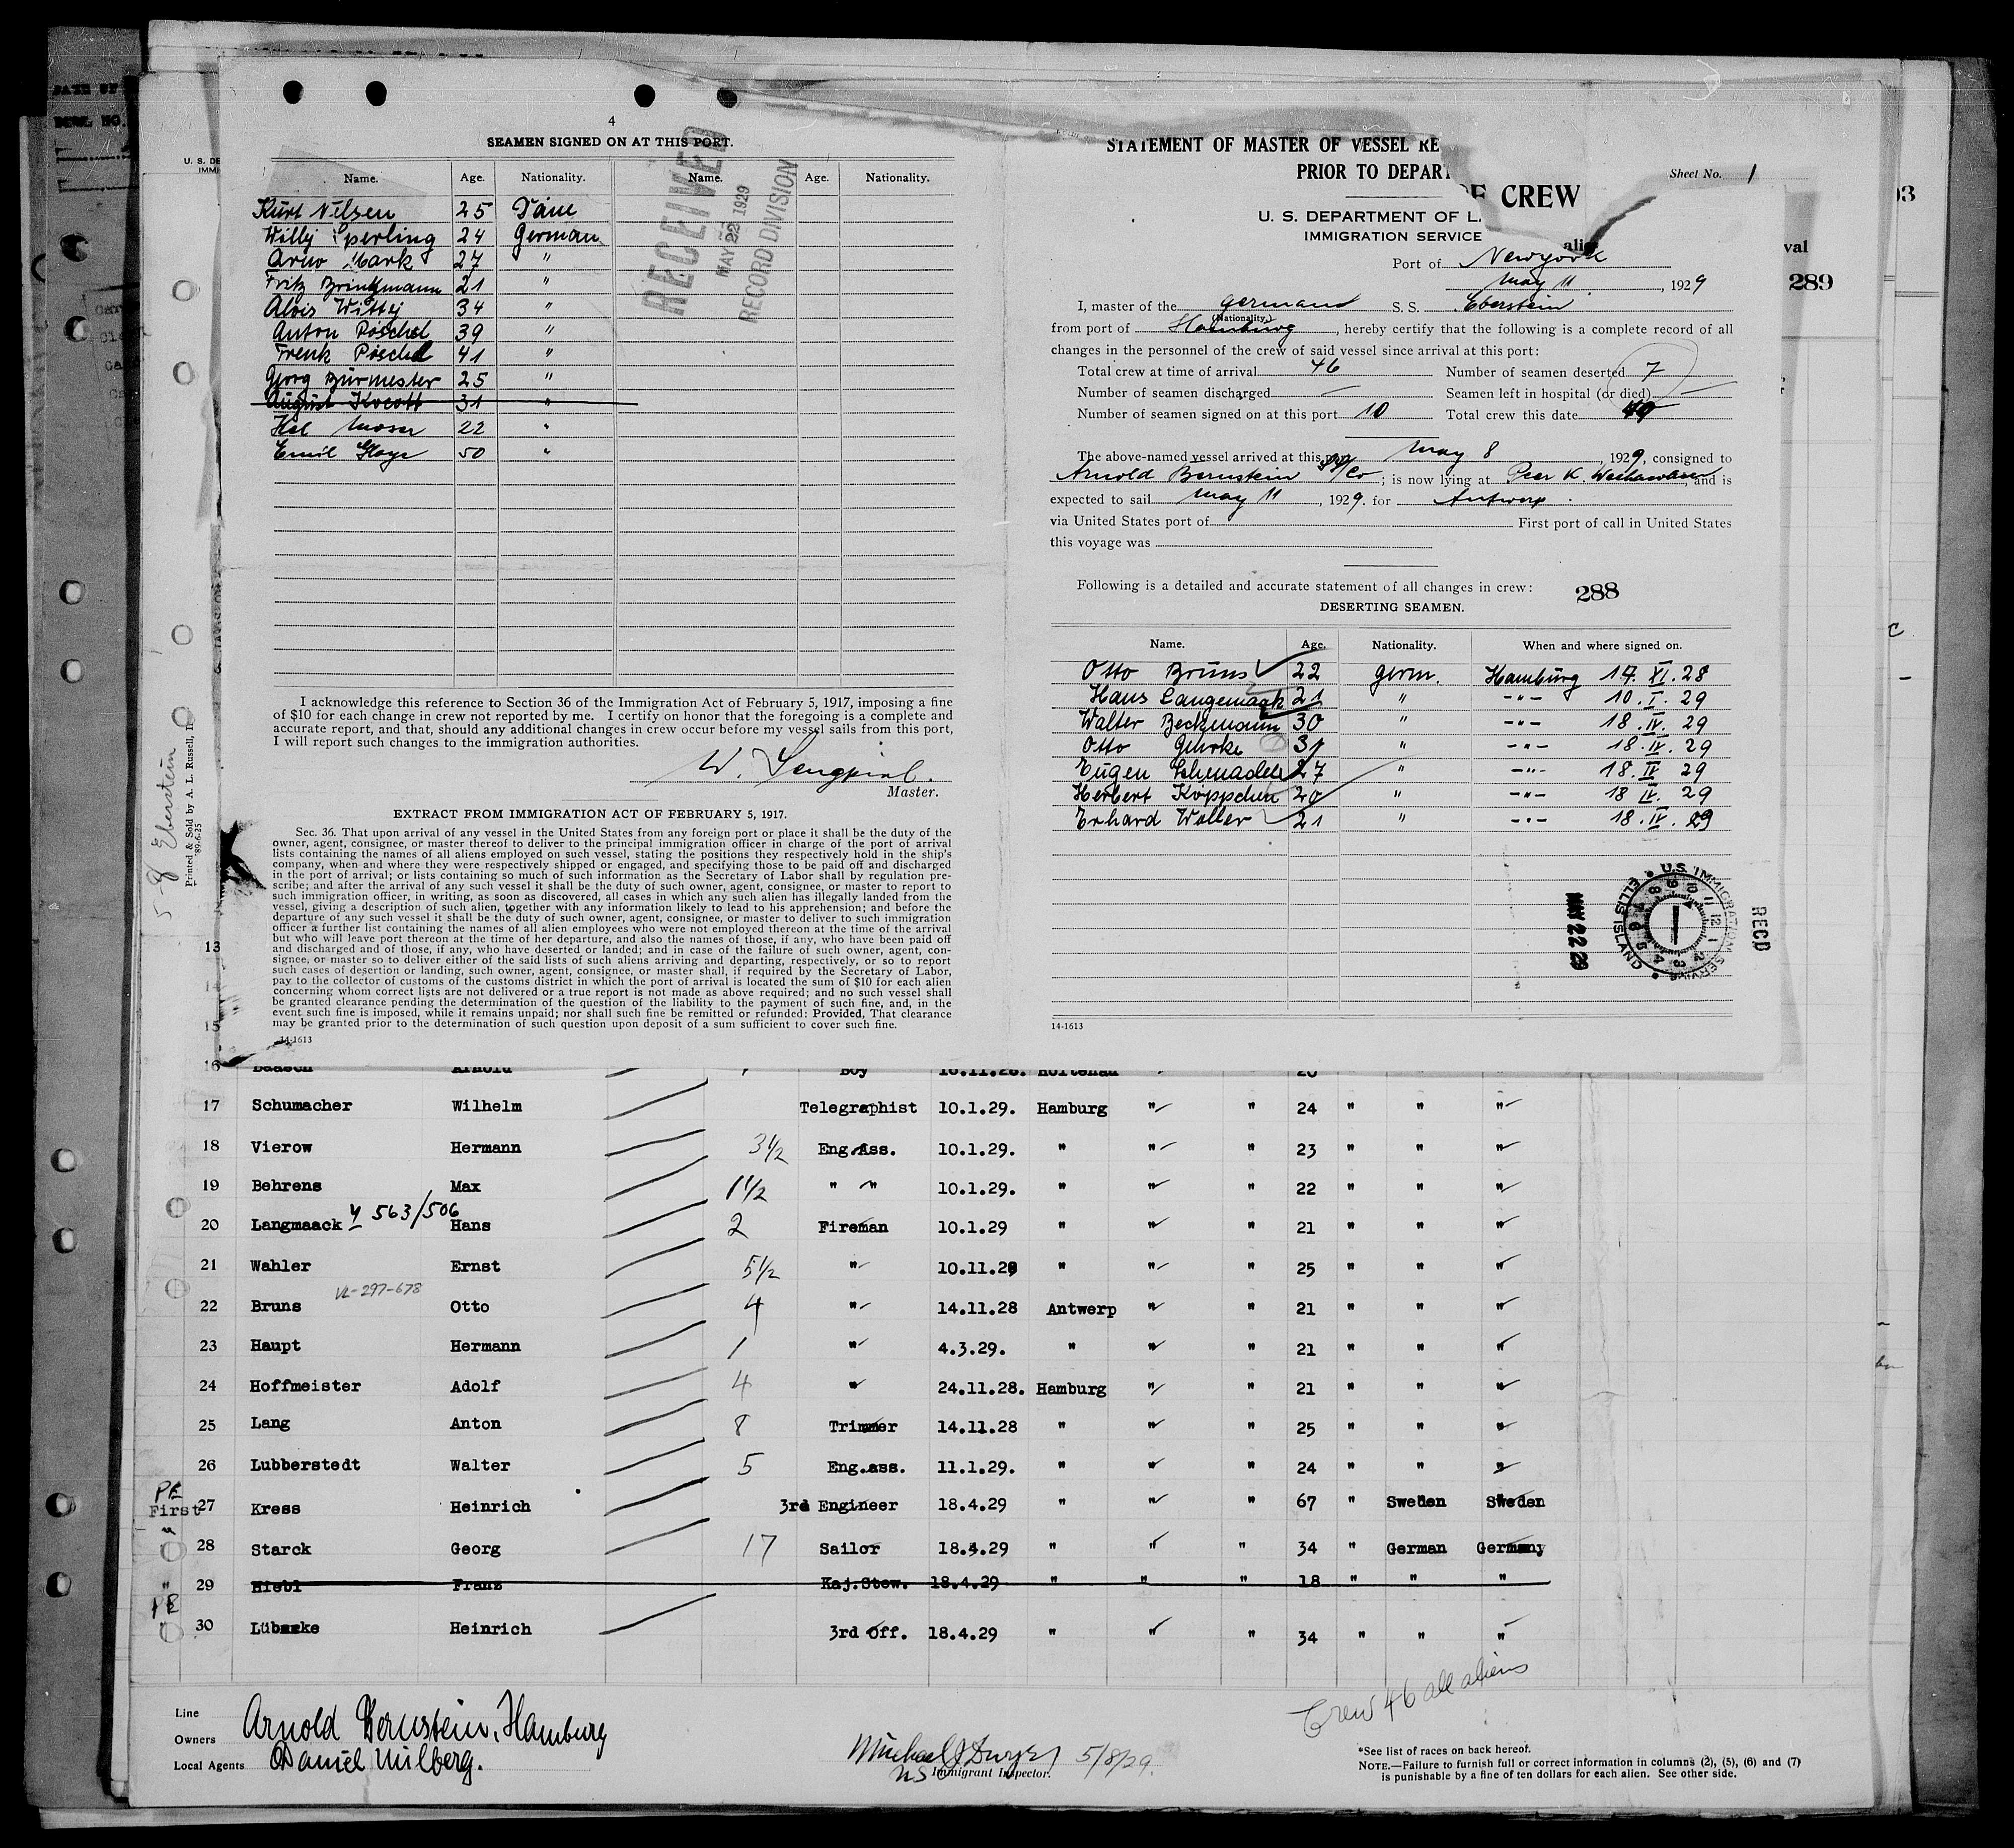 4
SEAMEN SIGNED ON AT THIS PORT.
Name. Age. Nationality. Name. Age. Nationality.
Kurt Nilsen 25 Däne
Willy Sperling 24 German
Arno Mark 27 "
Fritz Brinkmann 21 "
Alois Wittij 34 "
Anton Pöschel 39 "
Frenk Pöschel 41 "
Georg Bürmester 25 "
August Kocott 31 "
Hel Moser 22 "
Emil 50 "
RECEIVED
MAY 22 1929
RECORD DIVISION
I acknowledge this reference to Section 36 of the Immigration Act of February 5, 1917, imposing a fine
of $10 for each change in crew not reported by me. I certify on honor that the foregoing is a complete and
accurate report, and that, should any additional changes in crew occur before my vessel sails from this port,
I will report such changes to the immigration authorities.
W.
Master.
EXTRACT FROM IMMIGRATION ACT OF FEBRUARY 5, 1917.
Sec. 36. That upon arrival of any vessel in the United States from any foreign port or place it shall be the duty of the
owner, agent, consignee, or master thereof to deliver to the principal immigration officer in charge of the port of arrival
lists containing the names of all aliens employed on such vessel, stating the positions they respectively hold in the ship's
company, when and where they were respectively shipped or engaged, and specifying those to be paid off and discharged
in the port of arrival; or lists containing so much of such information as the Secretary of Labor shall by regulation pre-
scribe; and after the arrival of any such vessel it shall be the duty of such owner, agent, consignee, or master to report to
such immigration officer, in writing, as soon as discovered, all cases in which any such alien has illegally landed from the
vessel, giving a description of such alien, together with any information likely to lead to his apprehension; and before the
departure of any such vessel it shall be the duty of such owner, agent, consignee, or master to deliver to such immigration
officer a further list containing the names of all alien employees who were not employed thereon at the time of the arrival
but who will leave port thereon at the time of her departure, and also the names of those, if any, who have been paid off
and discharged and of those, if any, who have deserted or landed; and in case of the failure of such owner, agent, con-
signee, or master so to deliver either of the said lists of such aliens arriving and departing, respectively, or so to report
such cases of desertion or landing, such owner, agent, consignee, or master shall, if required by the Secretary of Labor,
pay to the collector of customs of the customs district in which the port of arrival is located the sum of $10 for each alien
concerning whom correct lists are not delivered or a true report is not made as above required; and no such vessel shall
be granted clearance pending the determination of the question of the liability to the payment of such fine, and, in the
event such fine is imposed, while it remains unpaid; nor shall such fine be remitted or refunded: Provided, That clearance
may be granted prior to the determination of such question upon deposit of a sum sufficient to cover such fine.
14-1613
STATEMENT OF MASTER OF VESSEL RE
PRIOR TO DEPART
CREW
Sheet No. 1
U. S. DEPARTMENT OF L
IMMIGRATION SERVICE
alien
val
289
Port of Newyork
May 11, 1929
I, master of the german S. S. Eberstein
(Nationality.)
from port of Hamburg, hereby certify that the following is a complete record of all
changes in the personnel of the crew of said vessel since arrival at this port:
Total crew at time of arrival 46 Number of seamen deserted 7
Number of seamen discharged — Seamen left in hospital (or died) —
Number of seamen signed on at this port 10 Total crew this date 49
The above-named vessel arrived at this port May 8, 1929, consigned to
Arnold Bernstein; is now lying at Peer K. Weehawken, and is
expected to sail May 11, 1929. for Antwerp.
via United States port of First port of call in United States
this voyage was
Following is a detailed and accurate statement of all changes in crew:
288
DESERTING SEAMEN.
Name. Age. Nationality. When and where signed on.
Otto Bruns 22 germ. Hamburg 14. XI. 28
Hans Langemaak 21 " -"- 10. I. 29
Walter Beckmann 30 " -"- 18. IV. 29
Otto Gehrke 31 " -"- 18. IV. 29
Eugen 27 " -"- 18. IV 29
Herbert Köppchen 20 " -"- 18 IV. 29
Erhard Woller 21 " -"- 18. IV. 29
MAY 22 29
U.S. IMMIGRATION SERVICE ELLIS ISLAND
RECD
14-1613
5-8 Eberstein
Printed & Sold by A. L. Russell, In
89-6-25
13
14
15
16 Baasch Arnold Boy Holtenau 20
17 Schumacher Wilhelm Telegraphist 10.1.29. Hamburg " " 24 " " "
18 Vierow Hermann 3½ Eng.Ass. 10.1.29. " " " 23 " " "
19 Behrens Max 1½ " " 10.1.29. " " " 22 " " "
4 563/506
20 Langmaack Hans 2 Fireman 10.1.29 " " " 21 " " "
21 Wahler Ernst 5½ " 10.11.28 " " " 25 " " "
VL-297-678
22 Bruns Otto 4 " 14.11.28 Antwerp " " 21 " " "
23 Haupt Hermann 1 " 4.3.29. " " " 21 " " "
24 Hoffmeister Adolf 4 " 24.11.28. Hamburg " " 21 " " "
25 Lang Anton 8 Trimmer 14.11.28 " " " 25 " " "
26 Lubberstedt Walter 5 Eng.ass. 11.1.29. " " " 24 " " "
PE
First 27 Kress Heinrich 3rd Engineer 18.4.29 " " " 67 " Sweden Sweden
" 28 Starck Georg 17 Sailor 18.4.29 " " " 34 " German Germany
" 29 Hiebl Franz Kaj.Stew. 18.4.29 " " " 18 " " "
PE
" 30 Heinrich 3rd Off. 18.4.29 " " " 34 " " "
Crew 46 all aliens
Line
Owners Arnold Bernstein, Hamburg
Local Agents Daniel Milberg.
Michael J Dwyer 5/8/29.
Immigrant Inspector.
*See list of races on back hereof.
NOTE.—Failure to furnish full or correct information in columns (2), (5), (6) and (7)
is punishable by a fine of ten dollars for each alien. See other side.